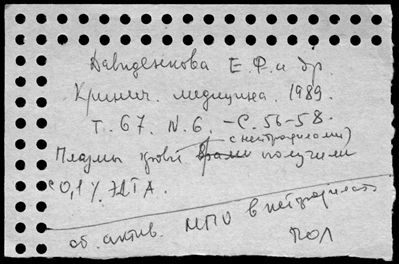 Давиденкова Е.Ф. и др.
Клинич. медицина. 1989.
Т. 67. N. 6. - С. 56-58.
с нейтрофилами)
Плазмы крови получили
с 0,1% ЭДТА.
об. актив. МПО в нейтрофилах
ПОЛ